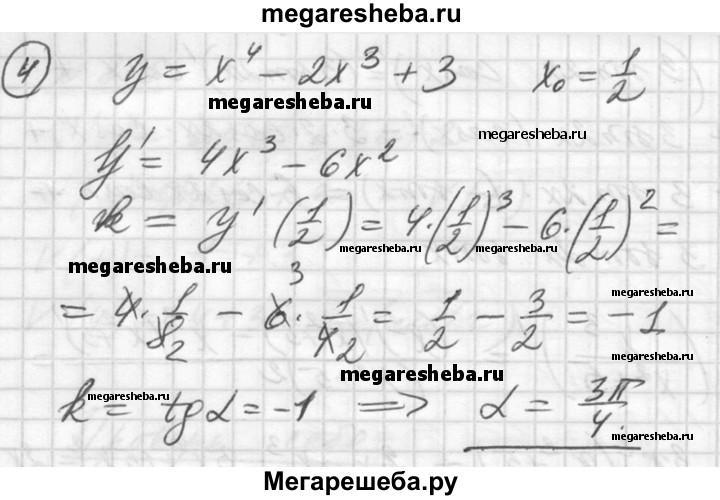 megaresheba.ru
④ y = x⁴ − 2x³ + 3   x₀ = 1/2
megaresheba.ru
megaresheba.ru
y' = 4x³ − 6x²
k = y'(1/2) = 4·(1/2)³ − 6·(1/2)² =
megaresheba.ru megaresheba.ru megaresheba.ru
megaresheba.ru
3
= 4·1/8 2 − 6·1/4 2 = 1/2 − 3/2 = −1
megaresheba.ru
megaresheba.ru
k = tg α = −1 ⟹ α = 3π/4.
Мегарешеба.ру